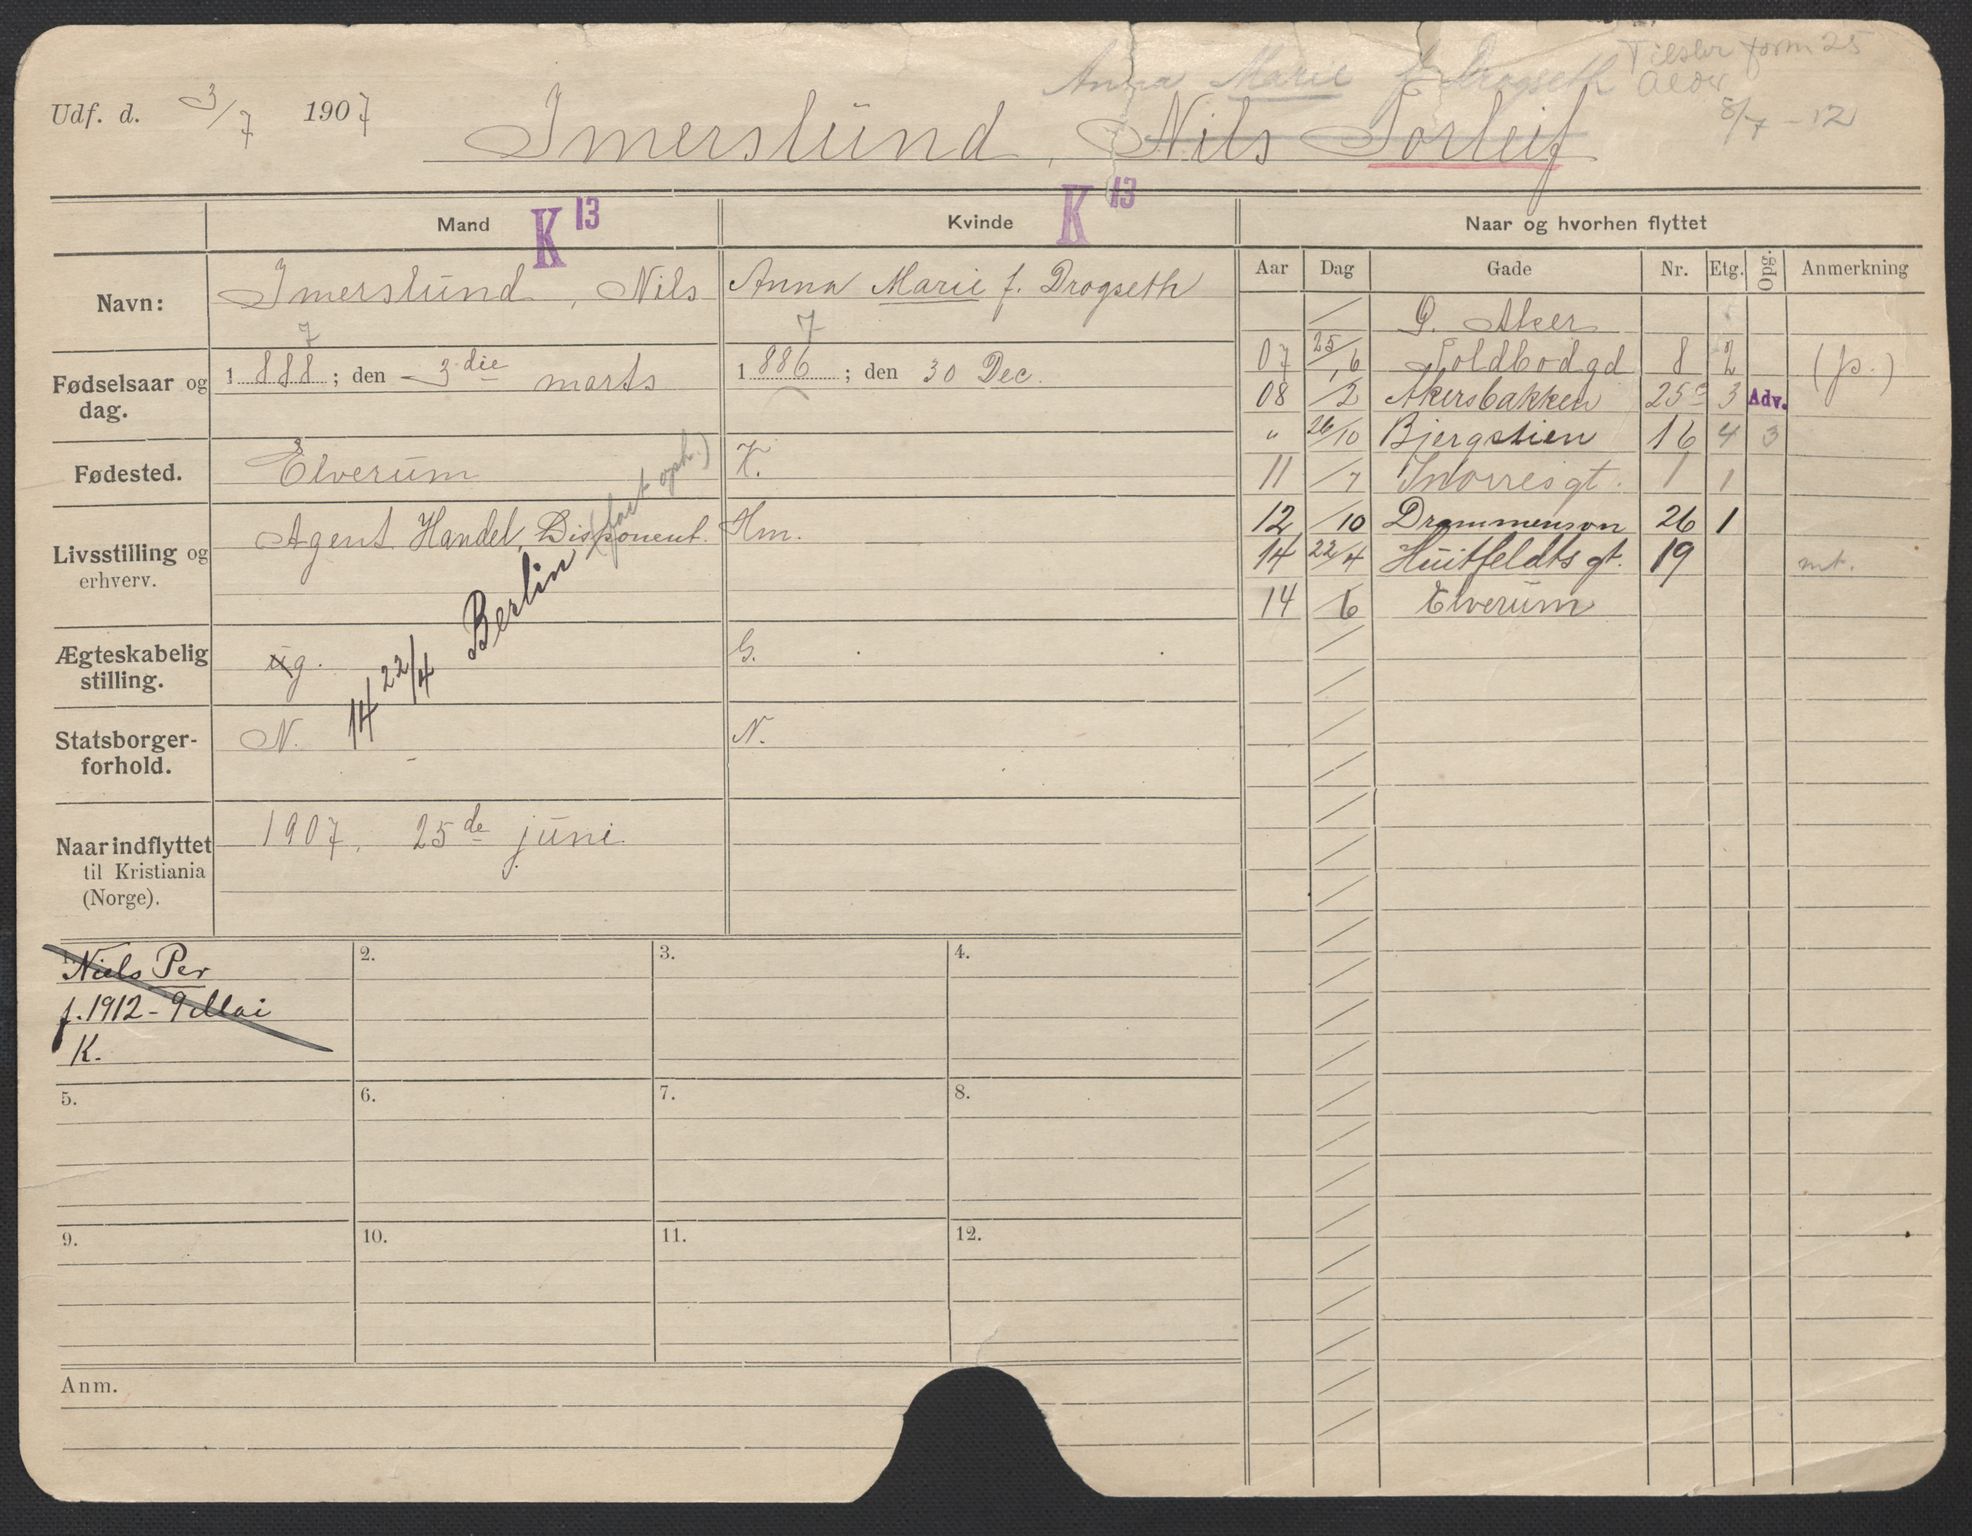 Anna Marie f. Drogseth Tilslv form 25
Alov
8/7 - 12
Udf. d. 3/7 1907 Imerslund, Nils Torleif
Mand K 13 Kvinde K 13 Naar og hvorhen flyttet
Aar Dag Gade Nr. Etg. Opg. Anmerkning
Navn: Imerslund, Nils Anna Marie f. Drogseth
7 7
Fødselsaar og dag. 1888; den 3die marts 1886; den 30 Dec.
Fødested. Elverum K.
Livsstilling og erhverv. Agent Handel, Disponent. (fast oph.) Hm.
14 22/4 Berlin
Ægteskabelig stilling. ug. G.
Statsborger-forhold. N. N.
Naar indflyttet til Kristiania (Norge). 1907. 25de juni
/ G. Aker
07 25/6 Toldbodgd 8 2 (p.)
08 1/2 Akersbakken 25c 3 Adv.
" 26/10 Bjergstien 16 4 3
11 /7 Snorresgt. 1 1
12 /10 Drammensvn 26 1
14 22/4 Huitfeldts gt. 19 mt.
14 /6 Elverum
1. Niels Per
f. 1912 - 9 Mai
K.
2.
3.
4.
5.
6.
7.
8.
9.
10.
11.
12.
Anm.